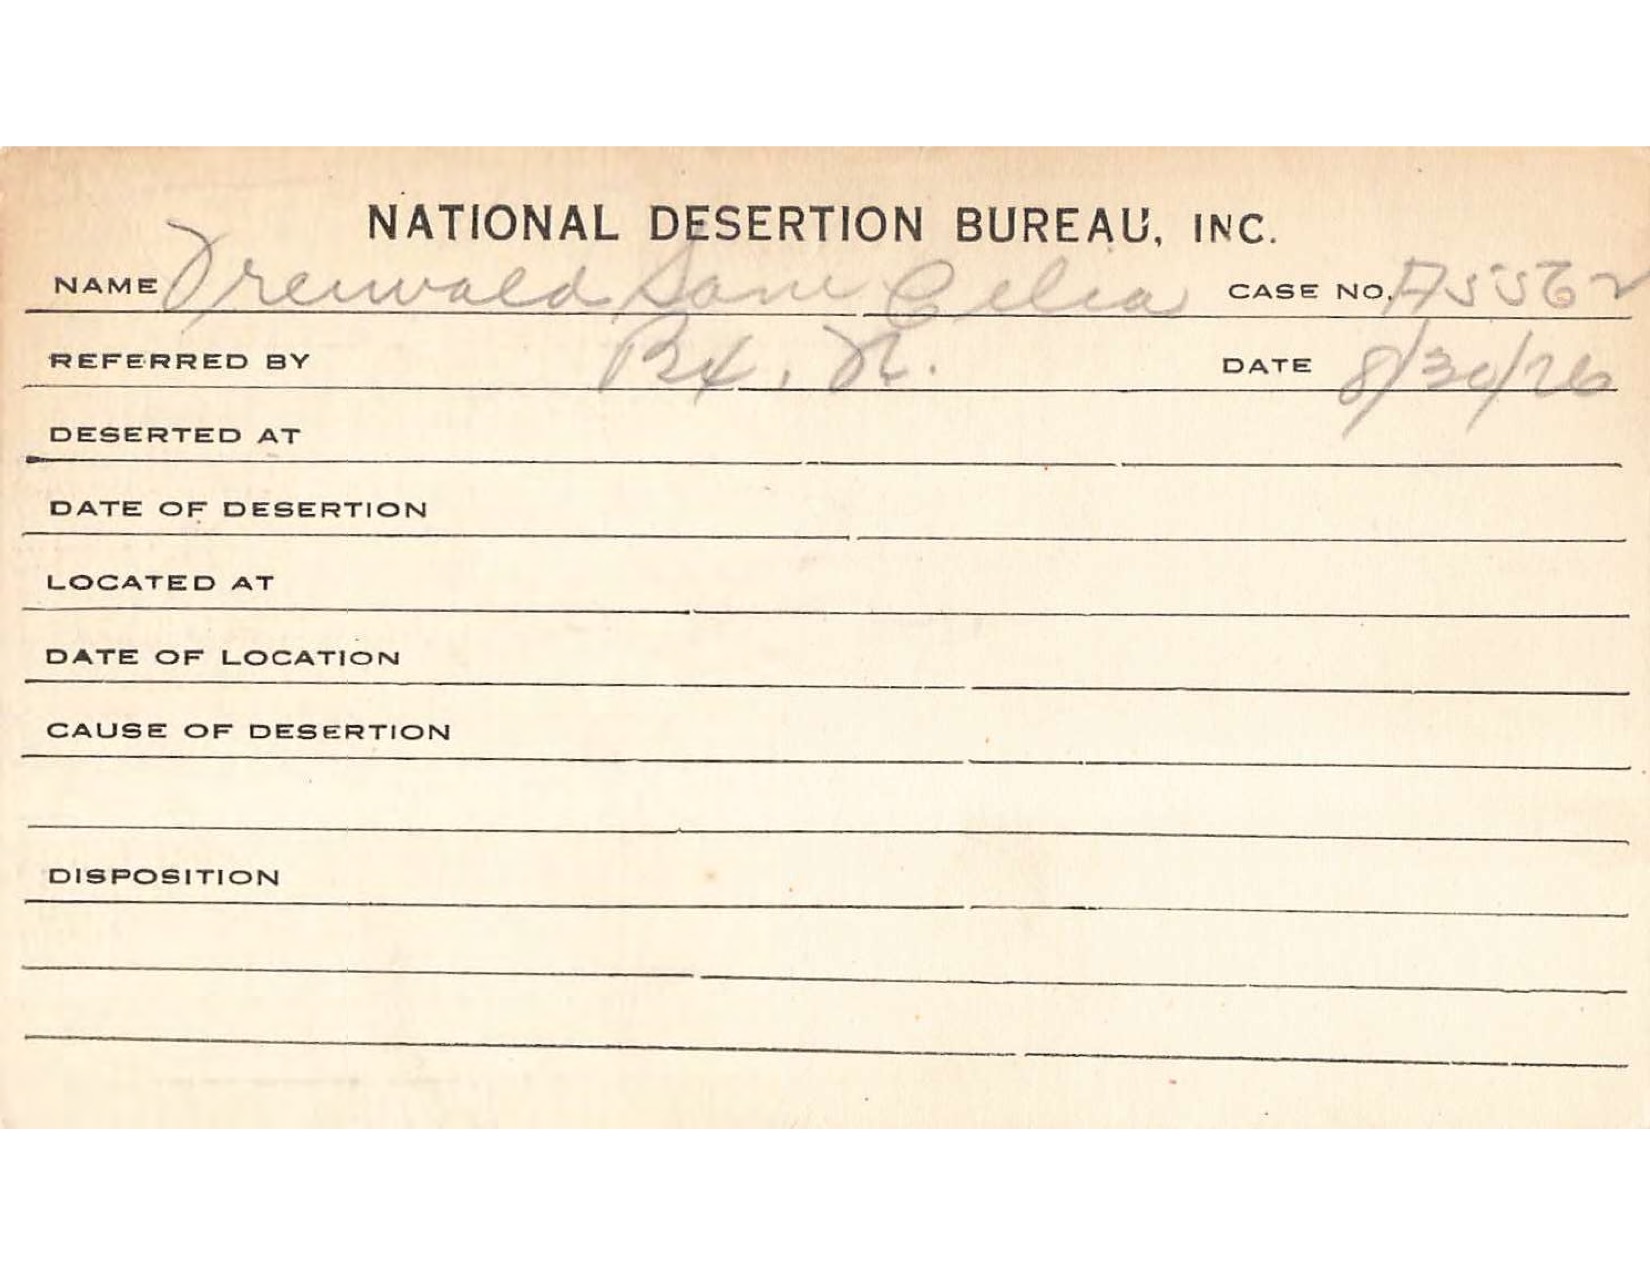 NATIONAL DESERTION BUREAU, INC.
NAME Drenwald Sam Celia CASE NO. A5562
REFERRED BY Bx. N. DATE 8/30/26
DESERTED AT
DATE OF DESERTION
LOCATED AT
DATE OF LOCATION
CAUSE OF DESERTION
DISPOSITION